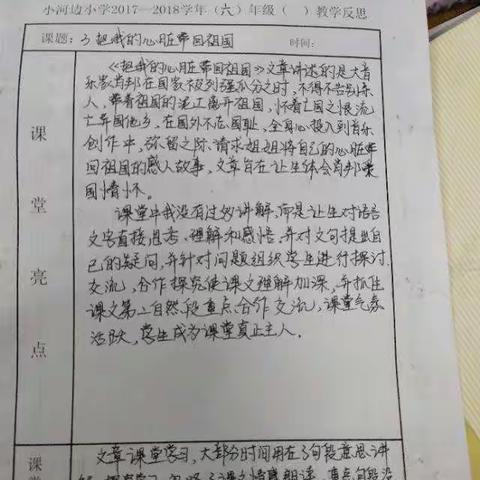 小河边小学2017—2018学年(六)年级( )教学反思
课题: 3 把我的心脏带回祖国 时间:
《把我的心脏带回祖国》文章讲述的是大音
乐家肖邦在国家被列强瓜分之时,不得不告别亲
人,带着祖国的泥土离开祖国,怀着亡国之恨流
亡异国他乡,在国外不忘国耻,全身心投入到音乐
创作中,弥留之际,请求姐姐将自己的心脏带
回祖国的感人故事,文章旨在让生体会肖邦爱
国情怀。
课堂中我没有过多讲解,而是让生对语言
文字直接思考、理解和感悟,并对文句提出自
己的疑问,并针对问题组织学生进行探讨
交流,合作探究使课文理解加深,并抓住
课文第二自然段重点、合作交流,课堂气氛
活跃,学生成为课堂真正主人。
课
堂
亮
点
文章课堂学习,大部分时间用在了句段意思讲
课文情感朗读,重点句段没
课
堂